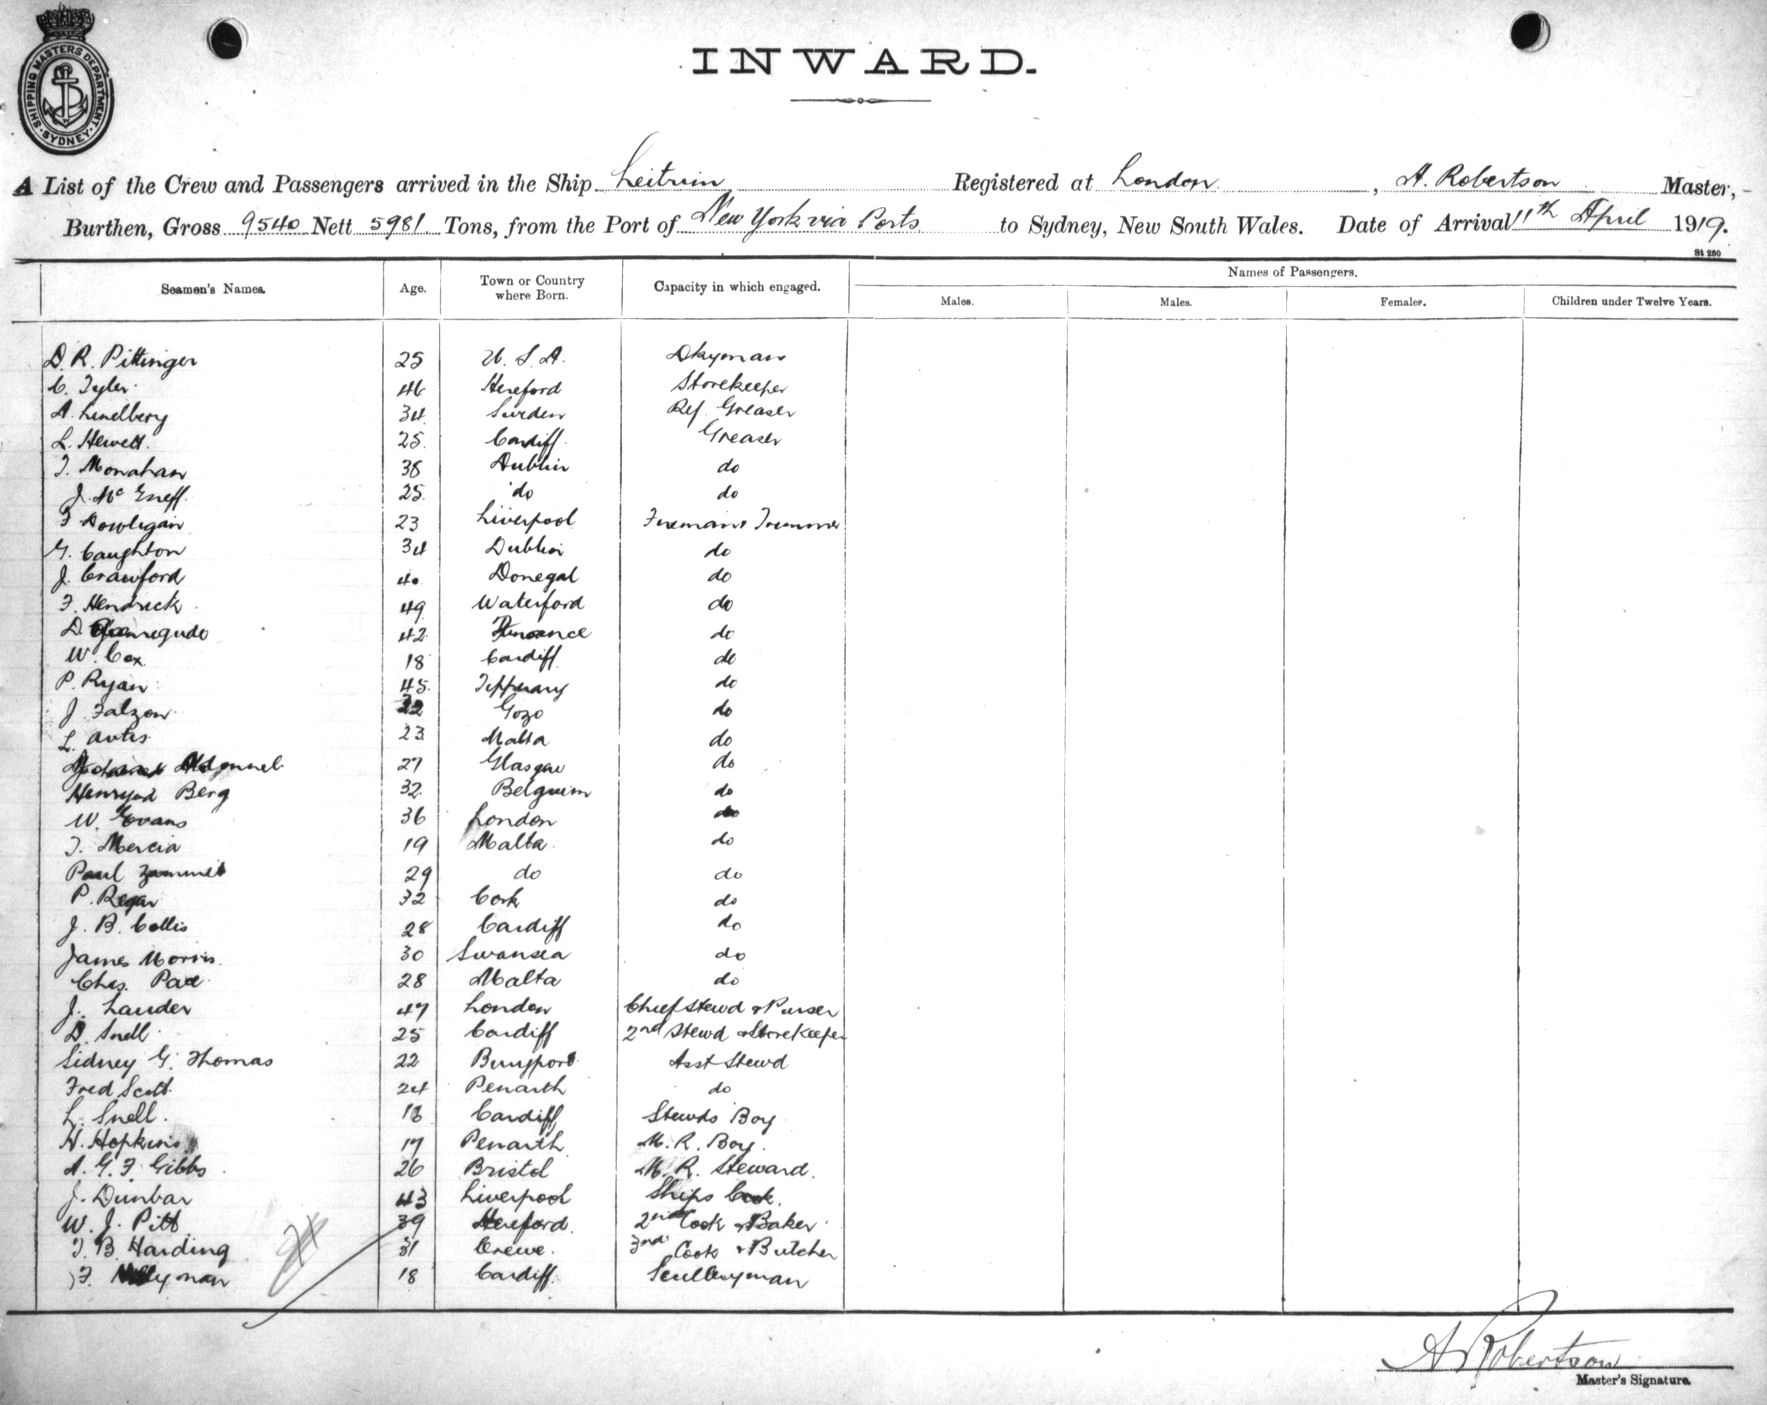 SHIPPING MASTERS DEPARTMENT
SYDNEY
INWARD.
A List of the Crew and Passengers arrived in the Ship Leitrim Registered at London, A. Robertson Master,
Burthen, Gross 9540 Nett 5981 Tons, from the Port of New York via Ports to Sydney, New South Wales. Date of Arrival 11th April 1919.
St 250
Seamen's Names. Age. Town or Country where Born. Capacity in which engaged. Names of Passengers.
Males. Males. Females. Children under Twelve Years.
D. R. Pittinger 25 U. S. A. Dkyman
C. Tyler 46 Hereford Storekeeper
A. Lindberg 34 Sweden Ref. Greaser
L. Hewett. 25 Cardiff. Greaser
T. Monahan 38 Dublin do
J. Mc Eneff. 25 do do
F Dowligan 23 Liverpool Fireman & Trimmer
G. Caughton 34 Dublin do
J. Crawford 40 Donegal do
F. Hendrick 49 Waterford do
D. 42 do
W. Cox 18 Cardiff do
P. Ryan 45 Tipperary do
J Falzon 22 Gozo do
L. 23 Malta do
27 Glasgow do
Berg 32 Belguim do
W. Evans 36 London do
T. Mercia 19 Malta do
Paul Zammet 29 do do
P. Regan 32 Cork do
J. B. Collis 28 Cardiff do
James Morris. 30 Swansea do
Chas. Pace 28 Malta do
J. Lauder 47 London Chief Stewd & Purser
D. Snell 25 Cardiff 2nd Stewd & Storekeeper
Sidney G. Thomas 22 Asst Stewd
Fred Scott. 24 Penarth do
L. Snell. 18 Cardiff Stewds Boy
H. Hopkins 17 Penarth M. R. Boy.
A. G. F. Gibbs 26 Bristol M. R. Steward.
J. Dunbar 43 Liverpool Ships Cook.
W. J. Pitt 39 Hereford. 2nd Cook & Baker
T. B. Harding 31 Crewe. 3rd Cook & Butcher
F. 18 Cardiff. Sculleryman
A Robertson
Master's Signature.